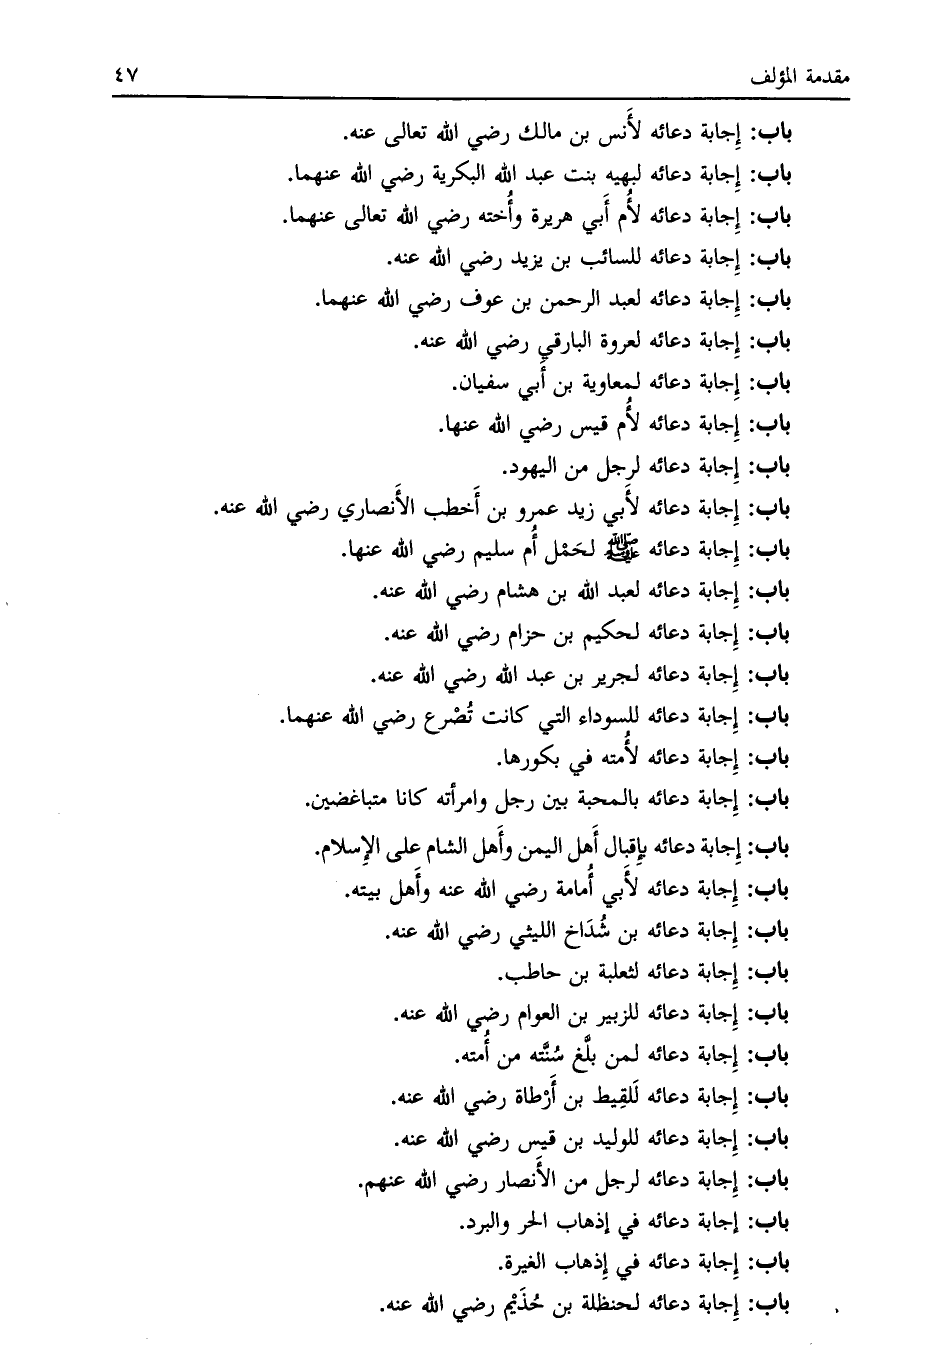 مقدمة المؤلف ٤٧
باب: إِجابة دعائه لأَنس بن مالك رضي الله تعالى عنه.
باب: إِجابة دعائه لبهيه بنت عبد الله البكرية رضي الله عنهما.
باب: إِجابة دعائه لأُم أَبي هريرة وأُخته رضي الله تعالى عنهما.
باب: إِجابة دعائه للسائب بن يزيد رضي الله عنه.
باب: إِجابة دعائه لعبد الرحمن بن عوف رضي الله عنهما.
باب: إِجابة دعائه لعروة البارقي رضي الله عنه.
باب: إِجابة دعائه لمعاوية بن أَبي سفيان.
باب: إِجابة دعائه لأُم قيس رضي الله عنها.
باب: إِجابة دعائه لرجل من اليهود.
باب: إِجابة دعائه لأَبي زيد عمرو بن أَخطب الأَنصاري رضي الله عنه.
باب: إِجابة دعائه ﷺ لحَمْل أُم سليم رضي الله عنها.
باب: إِجابة دعائه لعبد الله بن هشام رضي الله عنه.
باب: إِجابة دعائه لحكيم بن حزام رضي الله عنه.
باب: إِجابة دعائه لجرير بن عبد الله رضي الله عنه.
باب: إِجابة دعائه للسوداء التي كانت تُصْرع رضي الله عنهما.
باب: إِجابة دعائه لأُمته في بكورها.
باب: إِجابة دعائه بالمحبة بين رجل وامرأته كانا متباغضين.
باب: إِجابة دعائه بإِقبال أَهل اليمن وأَهل الشام على الإِسلام.
باب: إِجابة دعائه لأَبي أُمامة رضي الله عنه وأَهل بيته.
باب: إِجابة دعائه بن شُدَاخ الليثي رضي الله عنه.
باب: إِجابة دعائه لثعلبة بن حاطب.
باب: إِجابة دعائه للزبير بن العوام رضي الله عنه.
باب: إِجابة دعائه لمن بلَّغ سُنَّته من أُمته.
باب: إِجابة دعائه لَلقِيط بن أَرْطاة رضي الله عنه.
باب: إِجابة دعائه للوليد بن قيس رضي الله عنه.
باب: إِجابة دعائه لرجل من الأَنصار رضي الله عنهم.
باب: إِجابة دعائه في إذهاب الحر والبرد.
باب: إِجابة دعائه في إِذهاب الغيرة.
باب: إِجابة دعائه لحنظلة بن حُذَيْم رضي الله عنه.